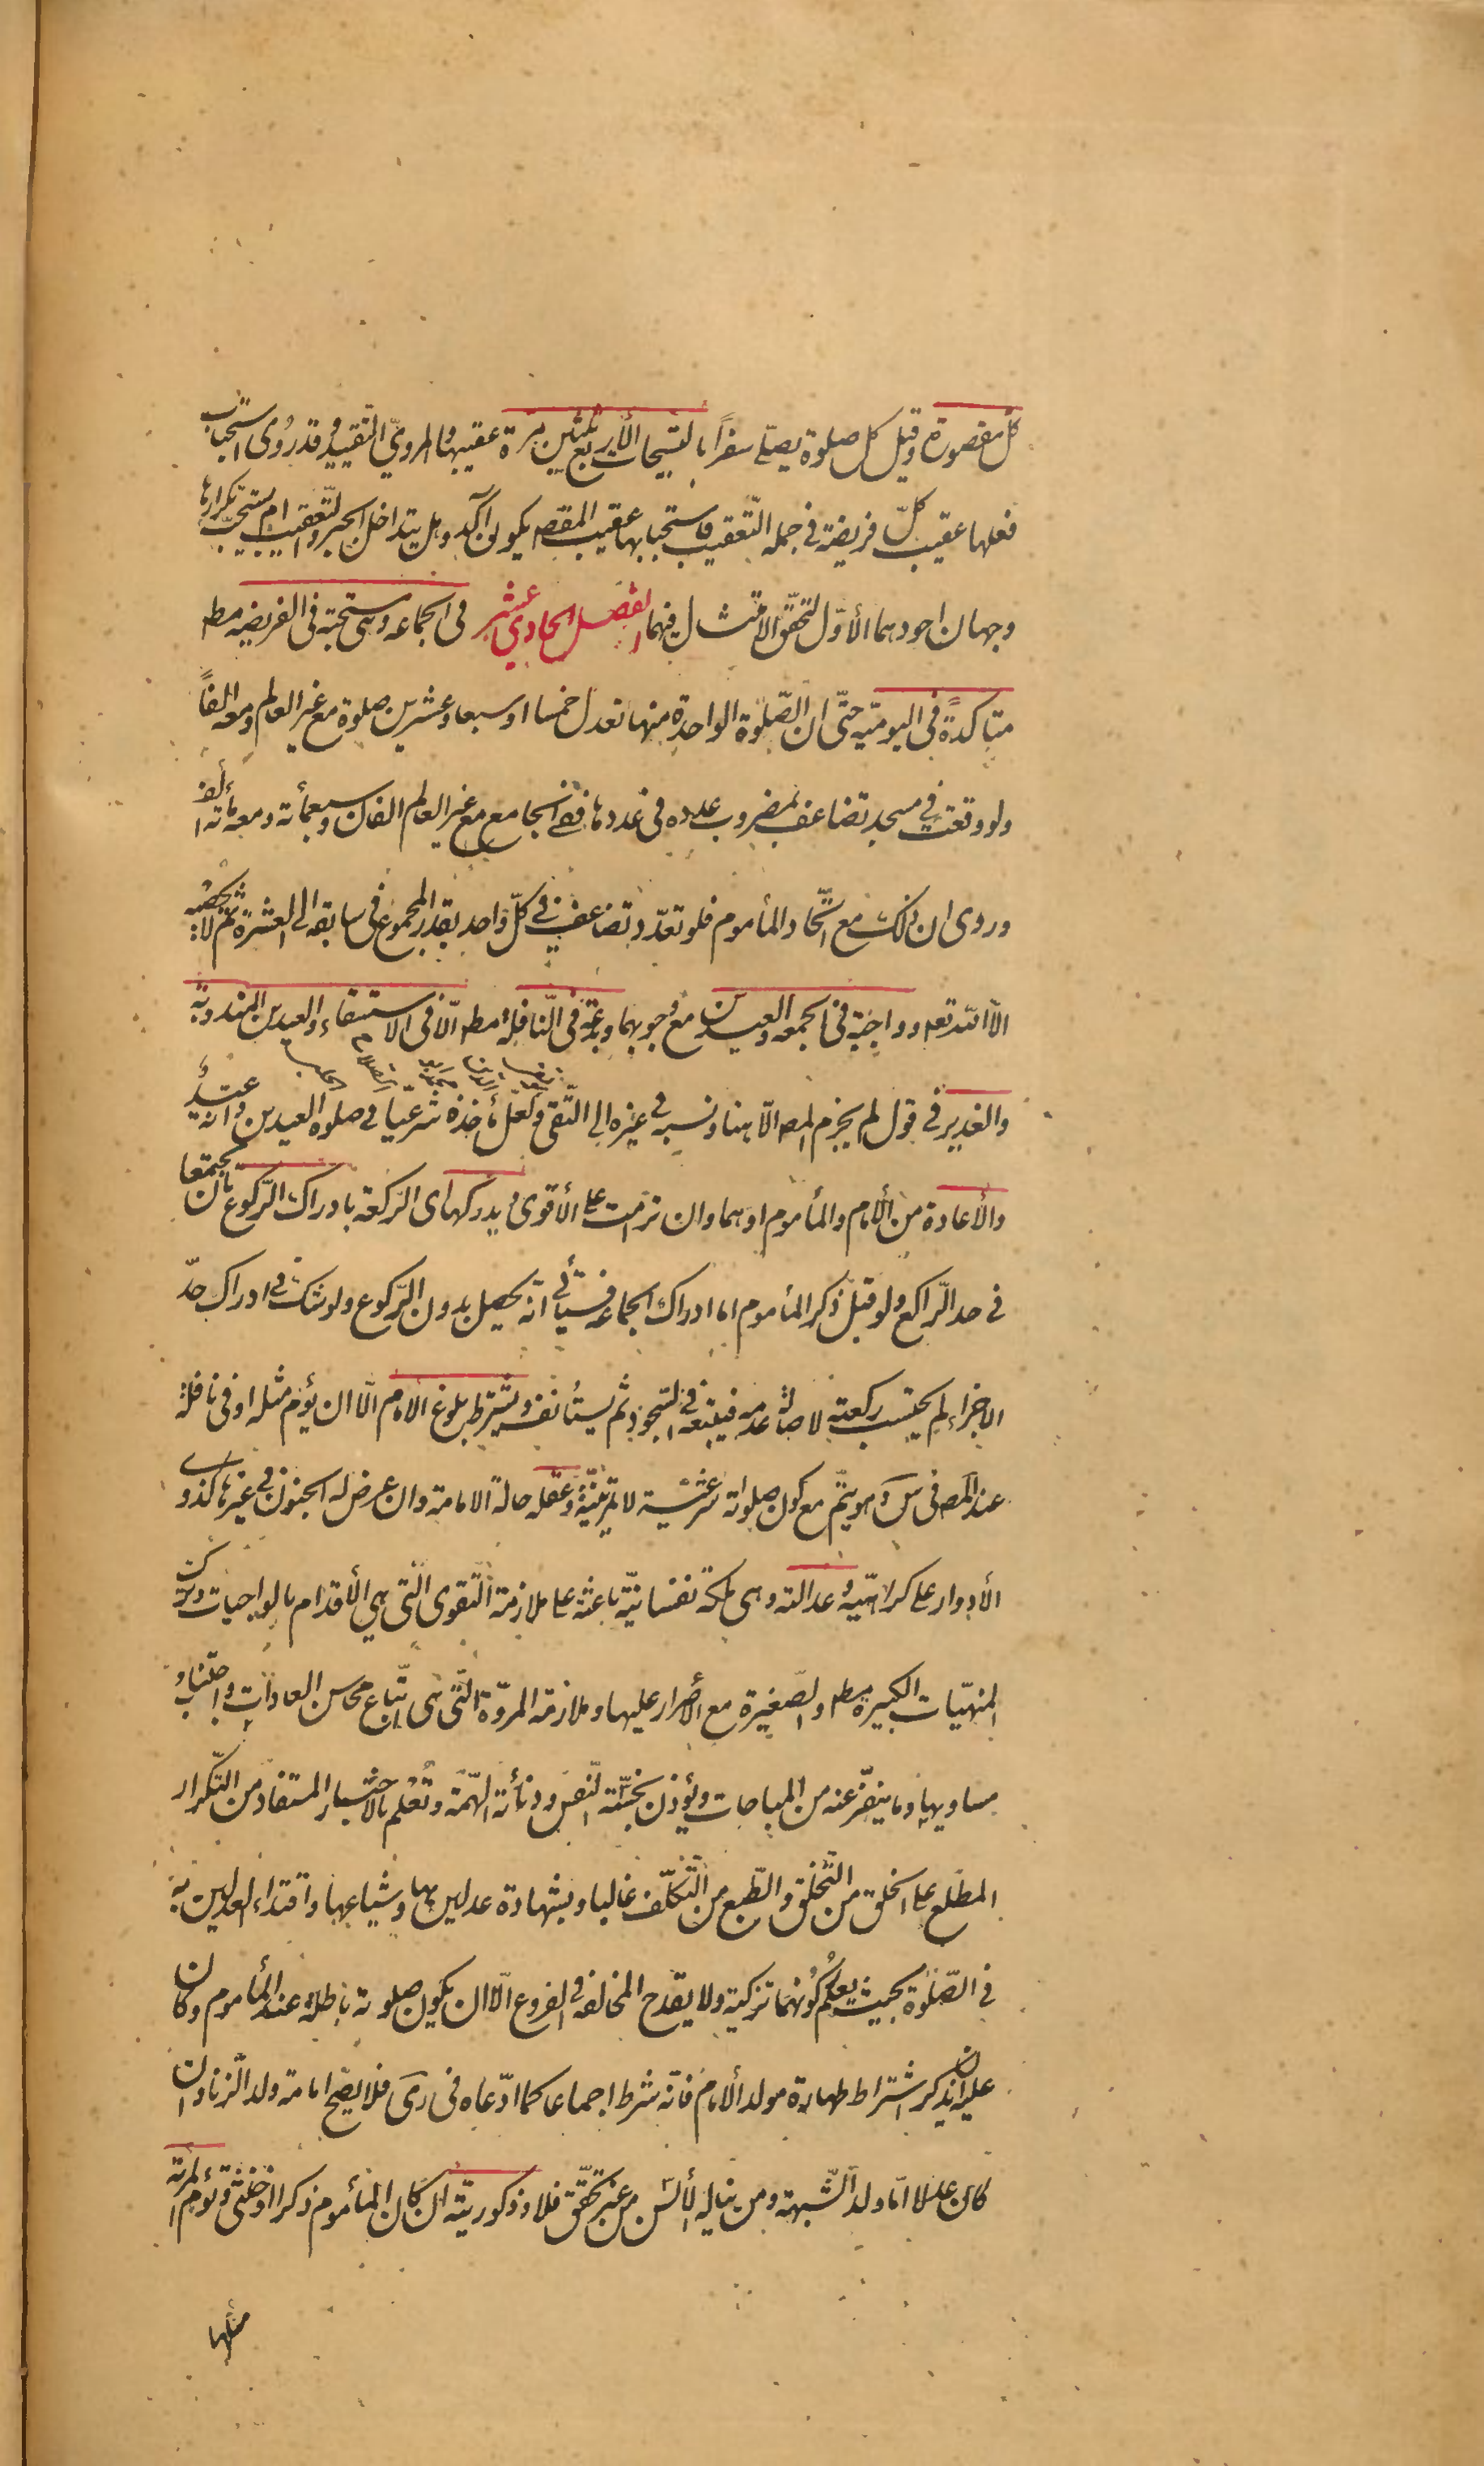 كل مقصورة وقيل كل صلوة يصلى سفراً بالتسبيحات الأربع ثلثين مرة عقيبها والمروي التقييد وقد روى استحباب
فعلها عقيب كلّ فريضة في جملة التعقيب فاستحبابها عقيب المقصورة يكون آكد وهل يتداخل الجبر والتّعقيب ام يستحبّ تكرارها
وجهان اجودهما الأوّل لتحقّق الامتثال فيهما الفصل الحادي عشر في الجماعه وهي مستحبة في الفريضه مطر
متأكدةً في اليوميّه حتّى ان الصّلوة الواحدة منها تعدل خمسا او سبعا وعشرين صلوة مع غير العالم ومعه الفاً
ولو وقعت في مسجد تضاعف بمضروب عدده في عددها ففي الجامع مع غير العالم الفان وسبعمأته ومعه مأته الف
وروى ان ذلك مع اتّحاد المأموم فلو تعدّد تضاعف في كلّ واحد بقدر المجموع في سابقه الى العشرة ثم لا يحصيه
الّا اللّه تعر وواجبة في الجمعه والعيدين مع وجوبهما وبدعة في النّافلة مطر الّا في الاستسقاء والعيدين المندوبة
والغدير في قول لم يجزم المصر الّا هنا ونسبه في غيره الى التّقى ولعلّ مأخذه شرعيّتها في صلوة العيدين وانّه عيدٌ
والأعادة من الأمام والمأموم او هما وان ترامت على الأقوى ويدركها اى الرّكعة بادراك الرّكوع بان يجتمعا
في حد الرّاكع ولو قبل ذكر المأموم اما ادراك الجماعه فسيأتي انّه يحصل بدون الرّكوع ولو شكّ في ادراك حدّ
الاجزاء لم يحتسب ركعته لاصالة عدمه فيتبعه في السّجود ثم يستأنف ويشترط بلوغ الامام الّا ان يؤم مثله او في نافلة
عند المصر في س وهو يتمّ مع كون صلواته شرعيّة لا تمرينيّة وعقله حالة الامامة وان عرض له الجنون في غيرها كذوى
الأدوار على كراهيّة وعدالته وهى ملكة نفسانيّة باعثة على ملازمة التّقوى الّتي هي الأقدام بالواجبات وترك
المنهيّات الكبيرة مطر والصّغيرة مع الأصرار عليها وملازمة المروّة الّتي هي اتّباع محاسن العادات واجتناب
مساويها وما ينفّر عنه من المباحات ويؤذن بخسّة النّفس ودنأئة الهمّة وتُعلم بالاختبار المستفاد من التّكرار
المطّلع على الخلق من التّخلّق والطّبع من التّكلّف غالبا وبشهادة عدلين بها وشياعها واقتداء العدلين به
في الصّلوة بحيث يعلم كونهما تزكية ولا يقدح المخالفة في الفروع الّا ان يكون صلوته باطلة عند المأموم وكان
عليه ان يذكر اشتراط طهارة مولد الأمام فانّه شرط اجماعا كما ادّعاه في رى فلا يصّح امامة ولد الّزنا وان
كان عدلا امّا ولد الشّبهة ومن يناله الألسن من غير تحقّق فلا وذكوريّته ان كان المأموم ذكرا او خنثى وتؤم المرئة
مثلها